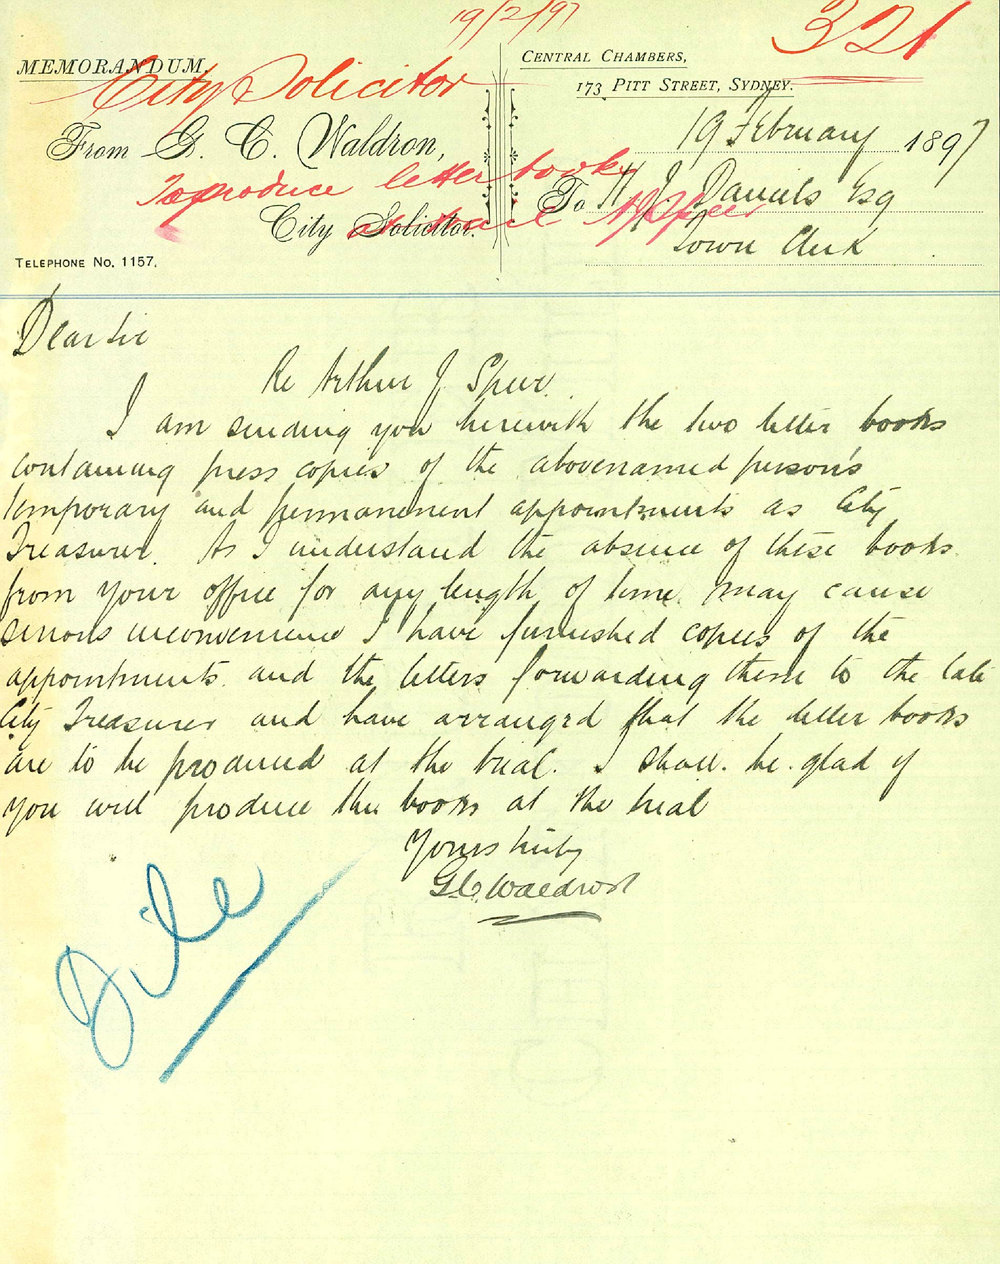 19/2/97
321
MEMORANDUM.
City Solicitor
CENTRAL CHAMBERS,
173 PITT STREET, SYDNEY.
From G. C. Waldron,
19 February 1897
To produce letter books
To H. J. Daniels Esq
City Solicitor.
Town Clerk
TELEPHONE No. 1157.
Dear Sir
Re Arthur J Speer.
I am sending you herewith the two letter books
containing press copies of the abovenamed person's
temporary and permanenent appointments as City
Treasurer. As I understand the absence of these books
from your office for any length of time may cause
serious inconvenience I have furnished copies of the
appointments and the letters forwarding them to the late
City Treasurer and have arranged that the letter books
are to be produced at the trial. I shall be glad if
you will produce the books at the trial
Yours truly
G.C. Waldron
File